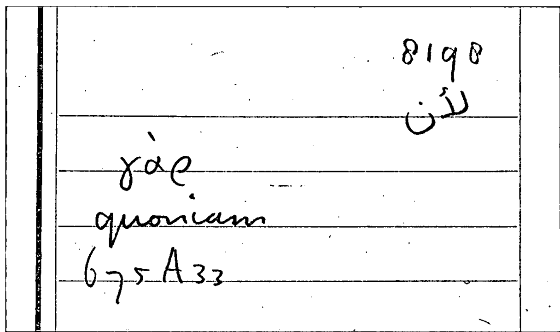 8198
لأن
γὰρ
quoniam
675 A 33